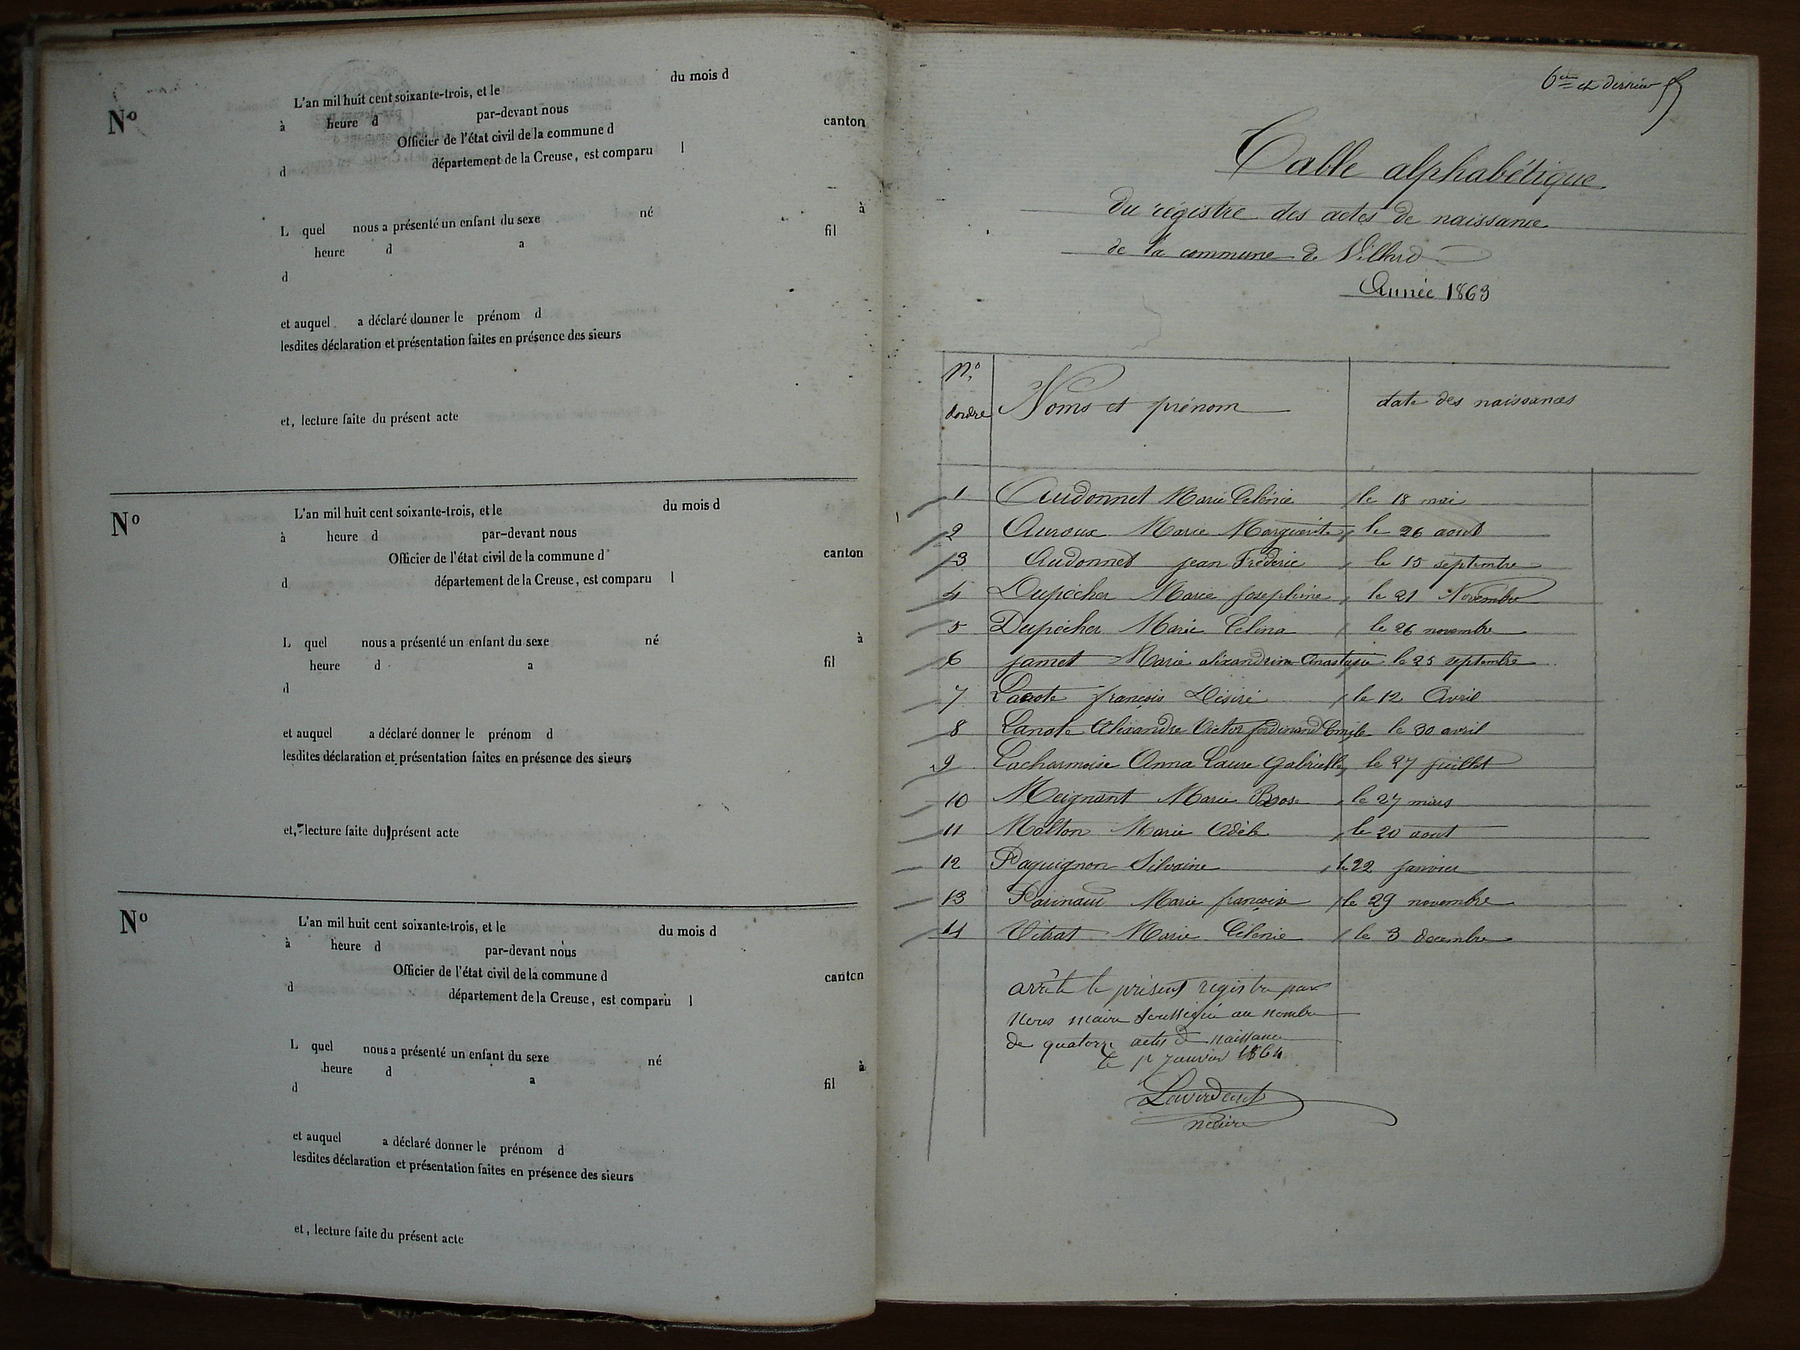 du mois d
L'an mil huit cent soixante-trois, et le
Nº
à heure d par-devant nous
Officier de l'état civil de la commune d canton
d département de la Creuse, est comparu l
L quel nous a présenté un enfant du sexe né à
heure d a fil
d
et auquel a déclaré donner le prénom d
lesdites déclaration et présentation faites en présence des sieurs
et, lecture faite du présent acte
Nº
L'an mil huit cent soixante-trois, et le du mois d
à heure d par-devant nous
Officier de l'état civil de la commune d canton
d département de la Creuse, est comparu l
L quel nous a présenté un enfant du sexe né à
heure d a fil
d
et auquel a déclaré donner le prénom d
lesdites déclaration et présentation faites en présence des sieurs
et, lecture faite du présent acte
Nº
L'an mil huit cent soixante-trois, et le du mois d
à heure d par-devant nous
Officier de l'état civil de la commune d canton
d département de la Creuse, est comparu l
L quel nous a présenté un enfant du sexe né à
heure d a fil
d
et auquel a déclaré donner le prénom d
lesdites déclaration et présentation faites en présence des sieurs
et, lecture faite du présent acte
et dernier
Table alphabétique
du régistre des actes de naissance
de la commune de
Année 1863
Nº d'ordre Noms et prénom date des naissances
1 Audonnet Marie Celénie le 18 mai
2 Auroux Marie Marguerite le 26 aout
3 Audonnet jean Frédéric le 15 septembre
4 Dupêcher Marie Josephine le 21 Novembre
5 Dupêcher Marie Celina le 26 novembre
6 jamet Marie alixandrine Anastasie le 25 septembre
7 françois Désiré le 12 Avril
8 Lanote Alexandre Victor ferdinand Emile le 30 avril
9 Lacharmoise Anna Laure Gabrielle le 27 juillet
10 Meignant Marie Rose le 27 mars
11 Malton Marie Adèle le 20 aout
12 Paquignon Silvaine le 22 janvier
13 Parinaud Marie françoise le 29 novembre
14 Vitrat Marie Celenie le 3 decembre
arrêté le présent registre par
Nous maire soussigné au nombre
de quatorze actes de naissance
le 1r Janvier 1864
Lavirdant
maire